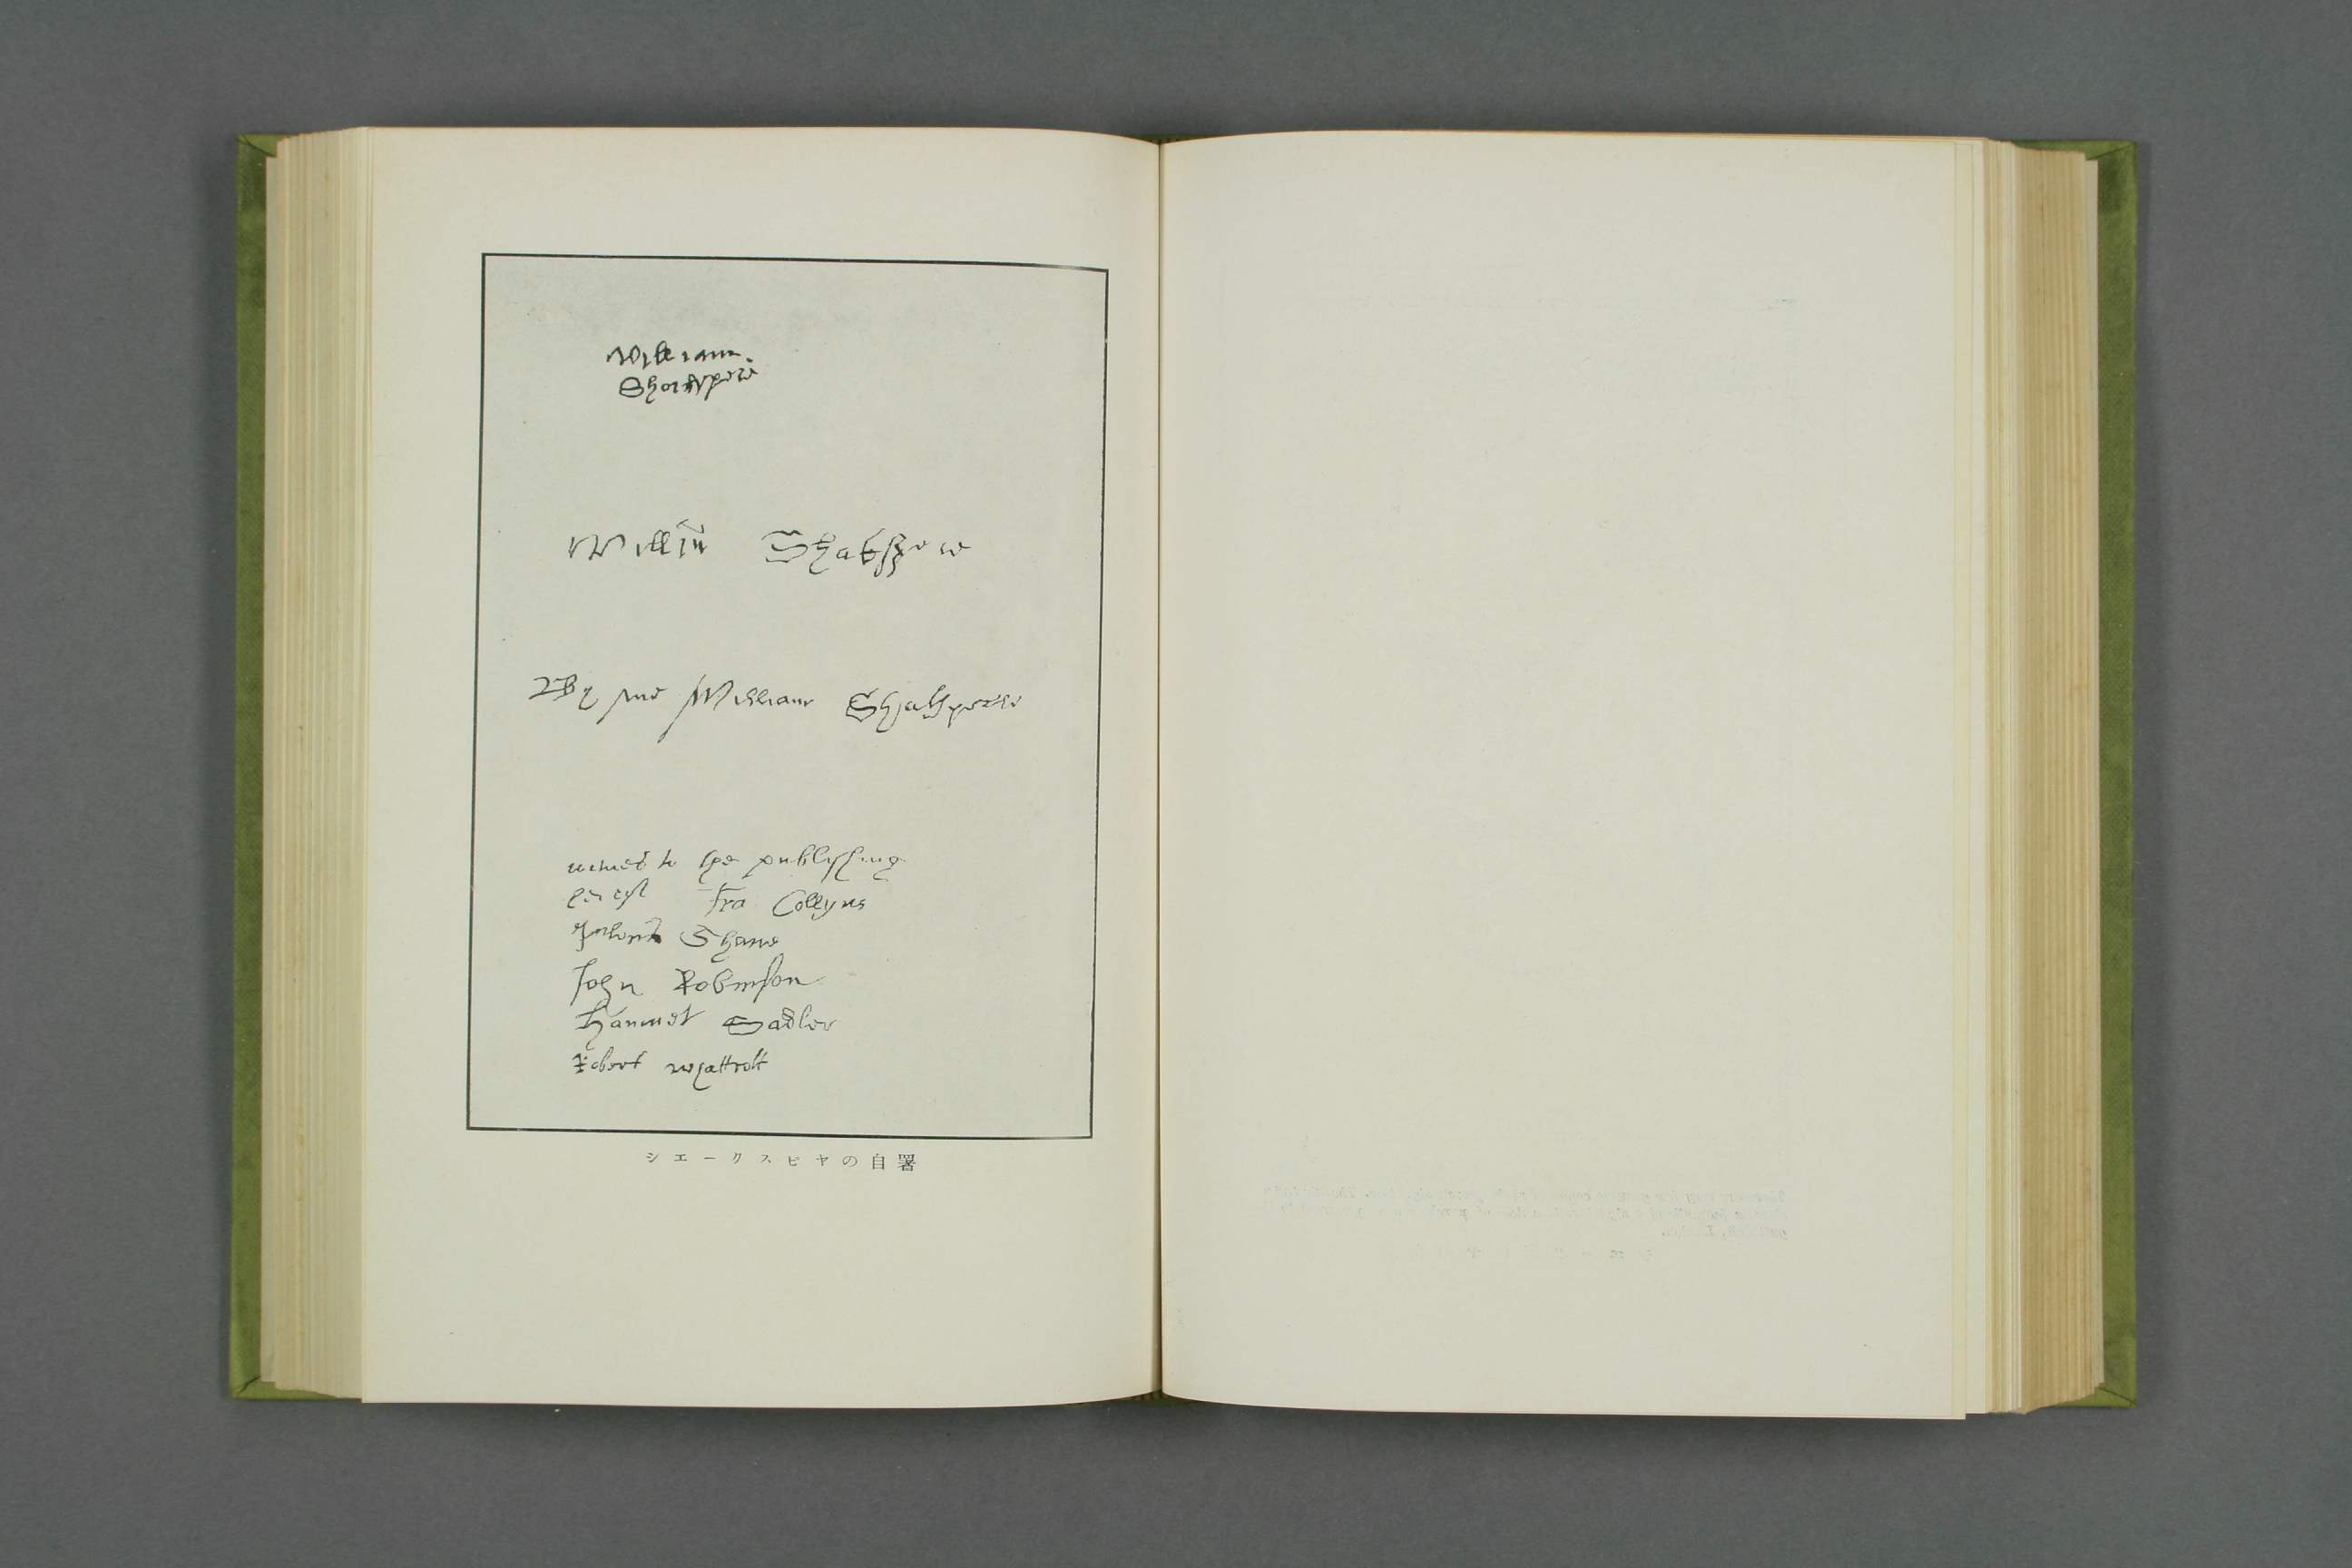 William
Shakspere
Willm Shakspere
By me William Shakspeare
witnes to the publishing
hereof Fra Collyns
Julius Shawe
John Robinson
Hamnet Sadler
Robert Whattcott
シエークスピヤの自署